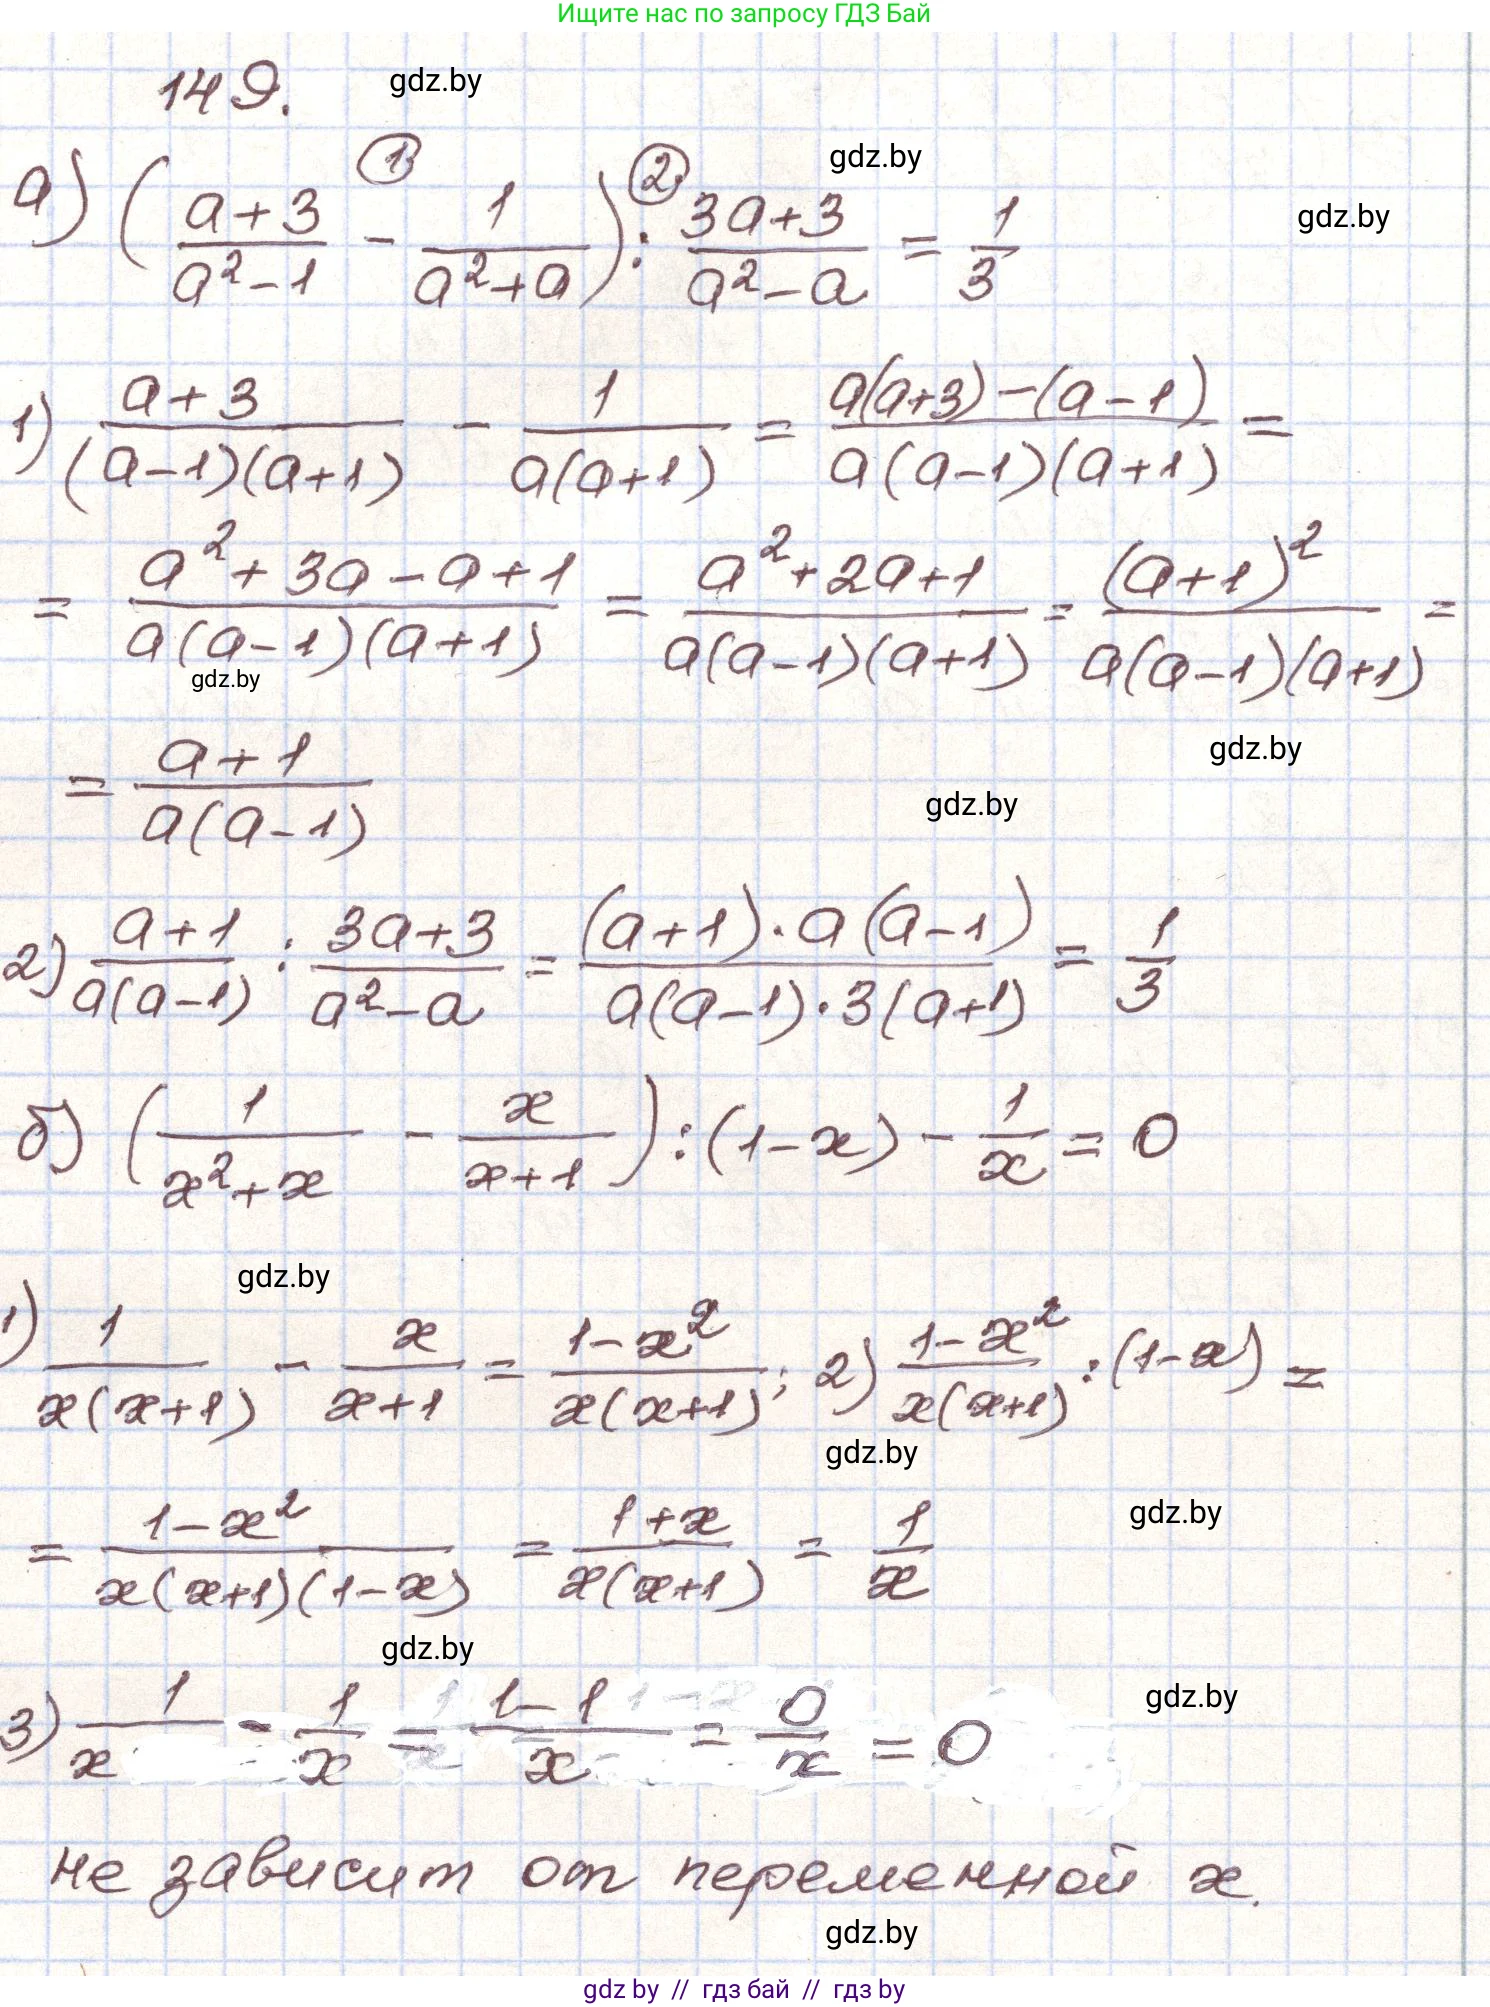 Ищите нас по запросу ГДЗ Бай
149. gdz.by
gdz.by
а) ( (a+3)/(a²-1) - 1/(a²+a) ) : (3a+3)/(a²-a) = 1/3
① ②
gdz.by
1) (a+3)/((a-1)(a+1)) - 1/(a(a+1)) = (a(a+3)-(a-1))/(a(a-1)(a+1)) =
= (a²+3a-a+1)/(a(a-1)(a+1)) = (a²+2a+1)/(a(a-1)(a+1)) = (a+1)²/(a(a-1)(a+1)) =
gdz.by
gdz.by
= (a+1)/(a(a-1))
gdz.by
2) (a+1)/(a(a-1)) : (3a+3)/(a²-a) = ((a+1)·a(a-1))/(a(a-1)·3(a+1)) = 1/3
б) ( 1/(x²+x) - x/(x+1) ) : (1-x) - 1/x = 0
gdz.by
1) 1/(x(x+1)) - x/(x+1) = (1-x²)/(x(x+1)); 2) (1-x²)/(x(x+1)) : (1-x) =
gdz.by
= (1-x²)/(x(x+1)(1-x)) = (1+x)/(x(x+1)) = 1/x
gdz.by
gdz.by
3) 1/x - 1/x = (1-1)/x = 0/x = 0
gdz.by
не зависит от переменной x.
gdz.by
gdz by // гдз бай // гдз by